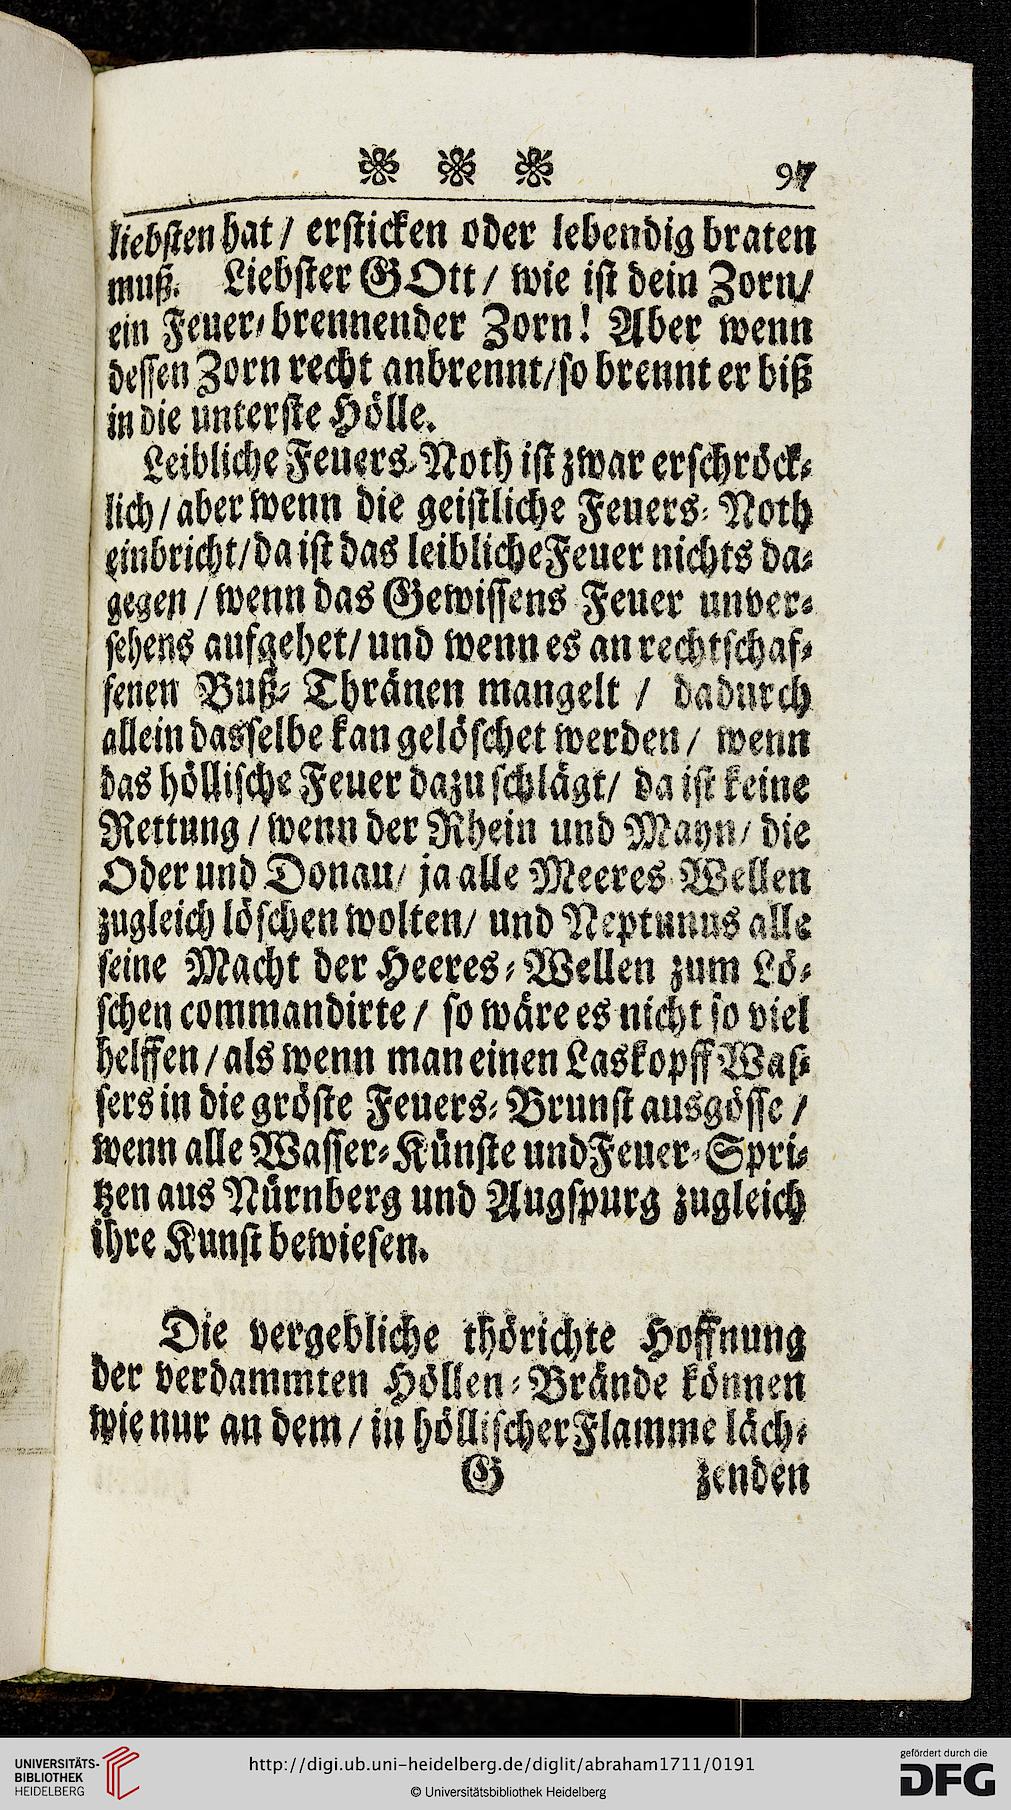 97
liebsten hat / ersticken oder lebendig braten
muß. Liebster GOtt / wie ist dein Zorn /
ein Feuer-brennender Zorn! Aber wenn
dessen Zorn recht anbrennt / so brennt er biß
in die unterste Hölle.
Leibliche Feuers-Noth ist zwar erschröck-
lich / aber wenn die geistliche Feuers-Noth
einbricht / da ist das leibliche Feuer nichts da-
gegen / wenn das Gewissens Feuer unver-
sehens aufgehet / und wenn es an rechtschaf-
fenen Buß-Thränen mangelt / dadurch
allein dasselbe kan gelöschet werden / wenn
das höllische Feuer dazu schlägt / da ist keine
Rettung / wenn der Rhein und Mayn / die
Oder und Donau / ja alle Meeres Wellen
zugleich löschen wolten / und Neptunus alle
seine Macht der Heeres-Wellen zum Lö-
schen commandirte / so wäre es nicht so viel
helffen / als wenn man einen Laskopff Was-
sers in die gröste Feuers-Brunst ausgösse /
wenn alle Wasser-Künste und Feuer-Spri-
tzen aus Nürnberg und Augspurg zugleich
ihre Kunst bewiesen.
Die vergebliche thörichte Hoffnung
der verdammten Höllen-Brände können
wie nur an dem / in höllischer Flamme läch-
G zenden
UNIVERSITÄTS-
BIBLIOTHEK
HEIDELBERG
http://digi.ub.uni-heidelberg.de/diglit/abraham1711/0191
© Universitätsbibliothek Heidelberg
gefördert durch die
DFG